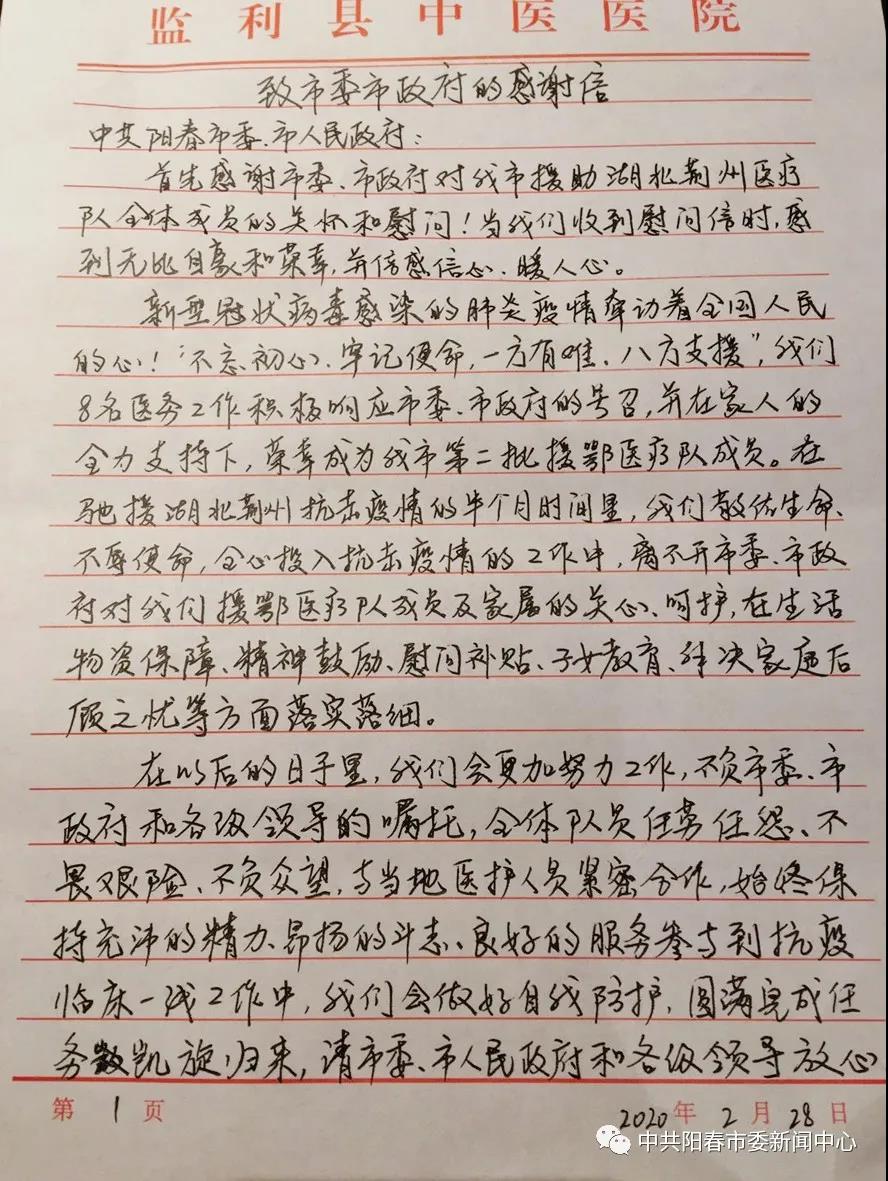 监利县中医医院
致市委市政府的感谢信
中共阳春市委、市人民政府：
首先感谢市委、市政府对我市援助湖北荆州医疗
队全体成员的关怀和慰问！当我们收到慰问信时，感
到无比自豪和荣幸，并倍感信心、暖人心。
新型冠状病毒感染的肺炎疫情牵动着全国人民
的心！“不忘初心、牢记使命，一方有难、八方支援”，我们
8名医务工作积极响应市委、市政府的号召，并在家人的
全力支持下，荣幸成为我市第二批援鄂医疗队成员。在
驰援湖北荆州抗击疫情的半个月时间里，我们敬佑生命、
不辱使命，全心投入抗击疫情的工作中，离不开市委、市政
府对我们援鄂医疗队成员及家属的关心、呵护，在生活
物资保障、精神鼓励、慰问补贴、子女教育、解决家庭后
顾之忧等方面落实落细。
在以后的日子里，我们会更加努力工作，不负市委、市
政府和各级领导的嘱托，全体队员任劳任怨、不
畏艰险、不负众望，与当地医护人员紧密合作，始终保
持充沛的精力、昂扬的斗志、良好的服务参与到抗疫
临床一线工作中，我们会做好自我防护，圆满完成任
务凯旋归来，请市委、市人民政府和各级领导放心
第 1 页 2020 年 2 月 28 日
中共阳春市委新闻中心